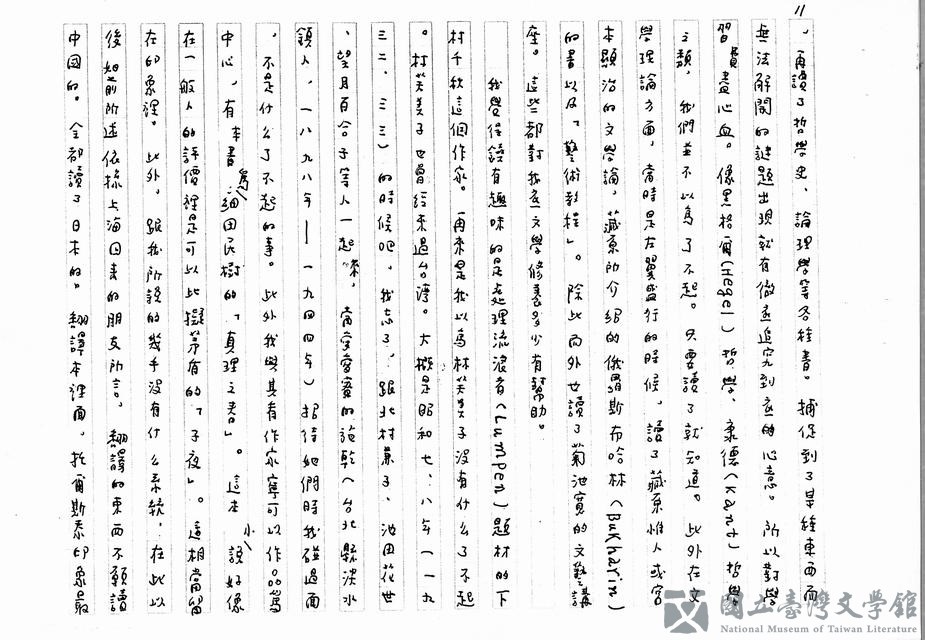 11
，再讀了哲學史、論理學等各種書。捕促到了某種東西而
無法解開的謎題出現就有徹底追究到底的心意。所以對學
習費盡心血。像黑格爾(Hegel)哲學、康德(Kant)哲學
之類，我們並不以為了不起。只要讀了就知道。此外在文
學理論方面，當時是左翼盛行的時候，讀了藏原惟人或宮
本顯治的文學論，藏原所介紹的俄羅斯布哈林(Bukharin)
的書以及「藝術教程」。除此而外也讀了菊池寬的文藝講
座。這些都對我底文學修養多少有幫助。
我覺得錢有趣味的是處理流浪者(Lumpen)題材的下
村千秋這個作家。再來是我以為林芙美子沒有什么了不起
。林芙美子也曾經來過台灣。大概是昭和七、八年（一九
三二、三三）的時候吧。我忘了，跟北村兼子、池田花世
、望月百合子等人一起來，當堂當賓的施乾（台北縣淡水
鎮人，一八九八年—一九四四年）招待她們時我碰過面
，不是什么了不起的事。此外我與其看作家寧可以作品為
中心，有本書為細田民樹的「真理之書」。這本小說好像
在一般人的評價裡是可以比擬茅盾的「子夜」。這相當留
在印象裡。此外，跟我所讀的幾乎沒有什么系統，在此以
後如前所述依據上海回來的朋友所言，翻譯的東西不願讀
中國的。全部讀了日本的。翻譯本裡面，托爾斯泰印象最
國立臺灣文學館
National Museum of Taiwan Literature